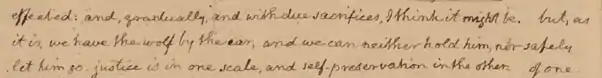 effected: and, gradually, and with due sacrifices, I think it might be. but, as
it is, we have the wolf by the ear, and we can neither hold him, nor safely
let him go. justice is in one scale, and self-preservation in the other. of one